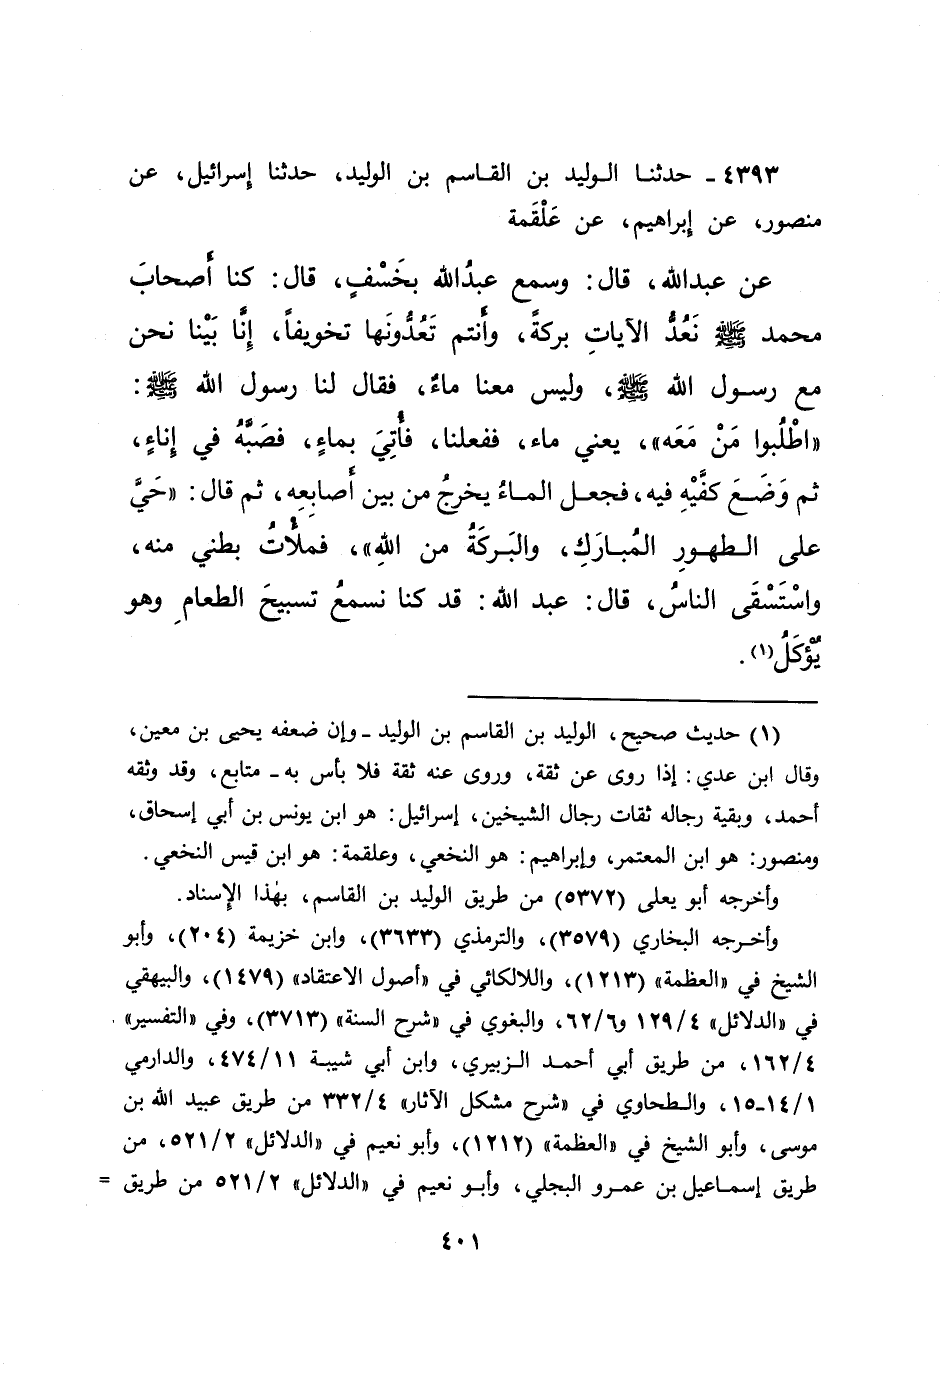 ٤٣٩٣ ـ حدثنا الوليد بن القاسم بن الوليد، حدثنا إسرائيل، عن
منصور، عن إبراهيم، عن عَلْقَمة
عن عبدالله، قال: وسمع عبدُالله بخَسْفٍ، قال: كنا أصحابَ
محمد ﷺ نَعُدُّ الآياتِ بركةً، وأنتم تَعُدُّونَها تخويفاً، إنَّا بَيْنا نحن
مع رسول الله ﷺ، وليس معنا ماءٌ، فقال لنا رسول الله ﷺ:
«اطْلُبوا مَنْ مَعَه»، يعني ماء، ففعلنا، فأُتِيَ بماءٍ، فصَبَّهُ في إناءٍ،
ثم وَضَعَ كفَّيْهِ فيه، فجعل الماءُ يخرجُ من بين أصابعِه، ثم قال: «حَيَّ
على الطهورِ المُبارَكِ، والبَركَةُ من اللهِ»، فملأتُ بطني منه،
واسْتَسْقَى الناسُ، قال: عبد الله: قد كنا نسمعُ تسبيحَ الطعامِ وهو
يُؤْكَلُ(١).
(١) حديث صحيح، الوليد بن القاسم بن الوليد ـ وإن ضعفه يحيى بن معين،
وقال ابن عدي: إذا روى عن ثقة، وروى عنه ثقة فلا بأس به ـ متابع، وقد وثقه
أحمد، وبقية رجاله ثقات رجال الشيخين، إسرائيل: هو ابن يونس بن أبي إسحاق،
ومنصور: هو ابن المعتمر، وإبراهيم: هو النخعي، وعلقمة: هو ابن قيس النخعي.
وأخرجه أبو يعلى (٥٣٧٢) من طريق الوليد بن القاسم، بهٰذا الإسناد.
وأخرجه البخاري (٣٥٧٩)، والترمذي (٣٦٣٣)، وابن خزيمة (٢٠٤)، وأبو
الشيخ في «العظمة» (١٢١٣)، واللالكائي في «أصول الاعتقاد» (١٤٧٩)، والبيهقي
في «الدلائل» ١٢٩/٤ و٦٢/٦، والبغوي في «شرح السنة» (٣٧١٣)، وفي «التفسير»
١٦٢/٤، من طريق أبي أحمد الزبيري، وابن أبي شيبة ٤٧٤/١١، والدارمي
١٤/١ـ١٥، والطحاوي في «شرح مشكل الآثار» ٣٣٢/٤ من طريق عبيد الله بن
موسى، وأبو الشيخ في «العظمة» (١٢١٢)، وأبو نعيم في «الدلائل» ٥٢١/٢، من
طريق إسماعيل بن عمرو البجلي، وأبو نعيم في «الدلائل» ٥٢١/٢ من طريق =
٤٠١